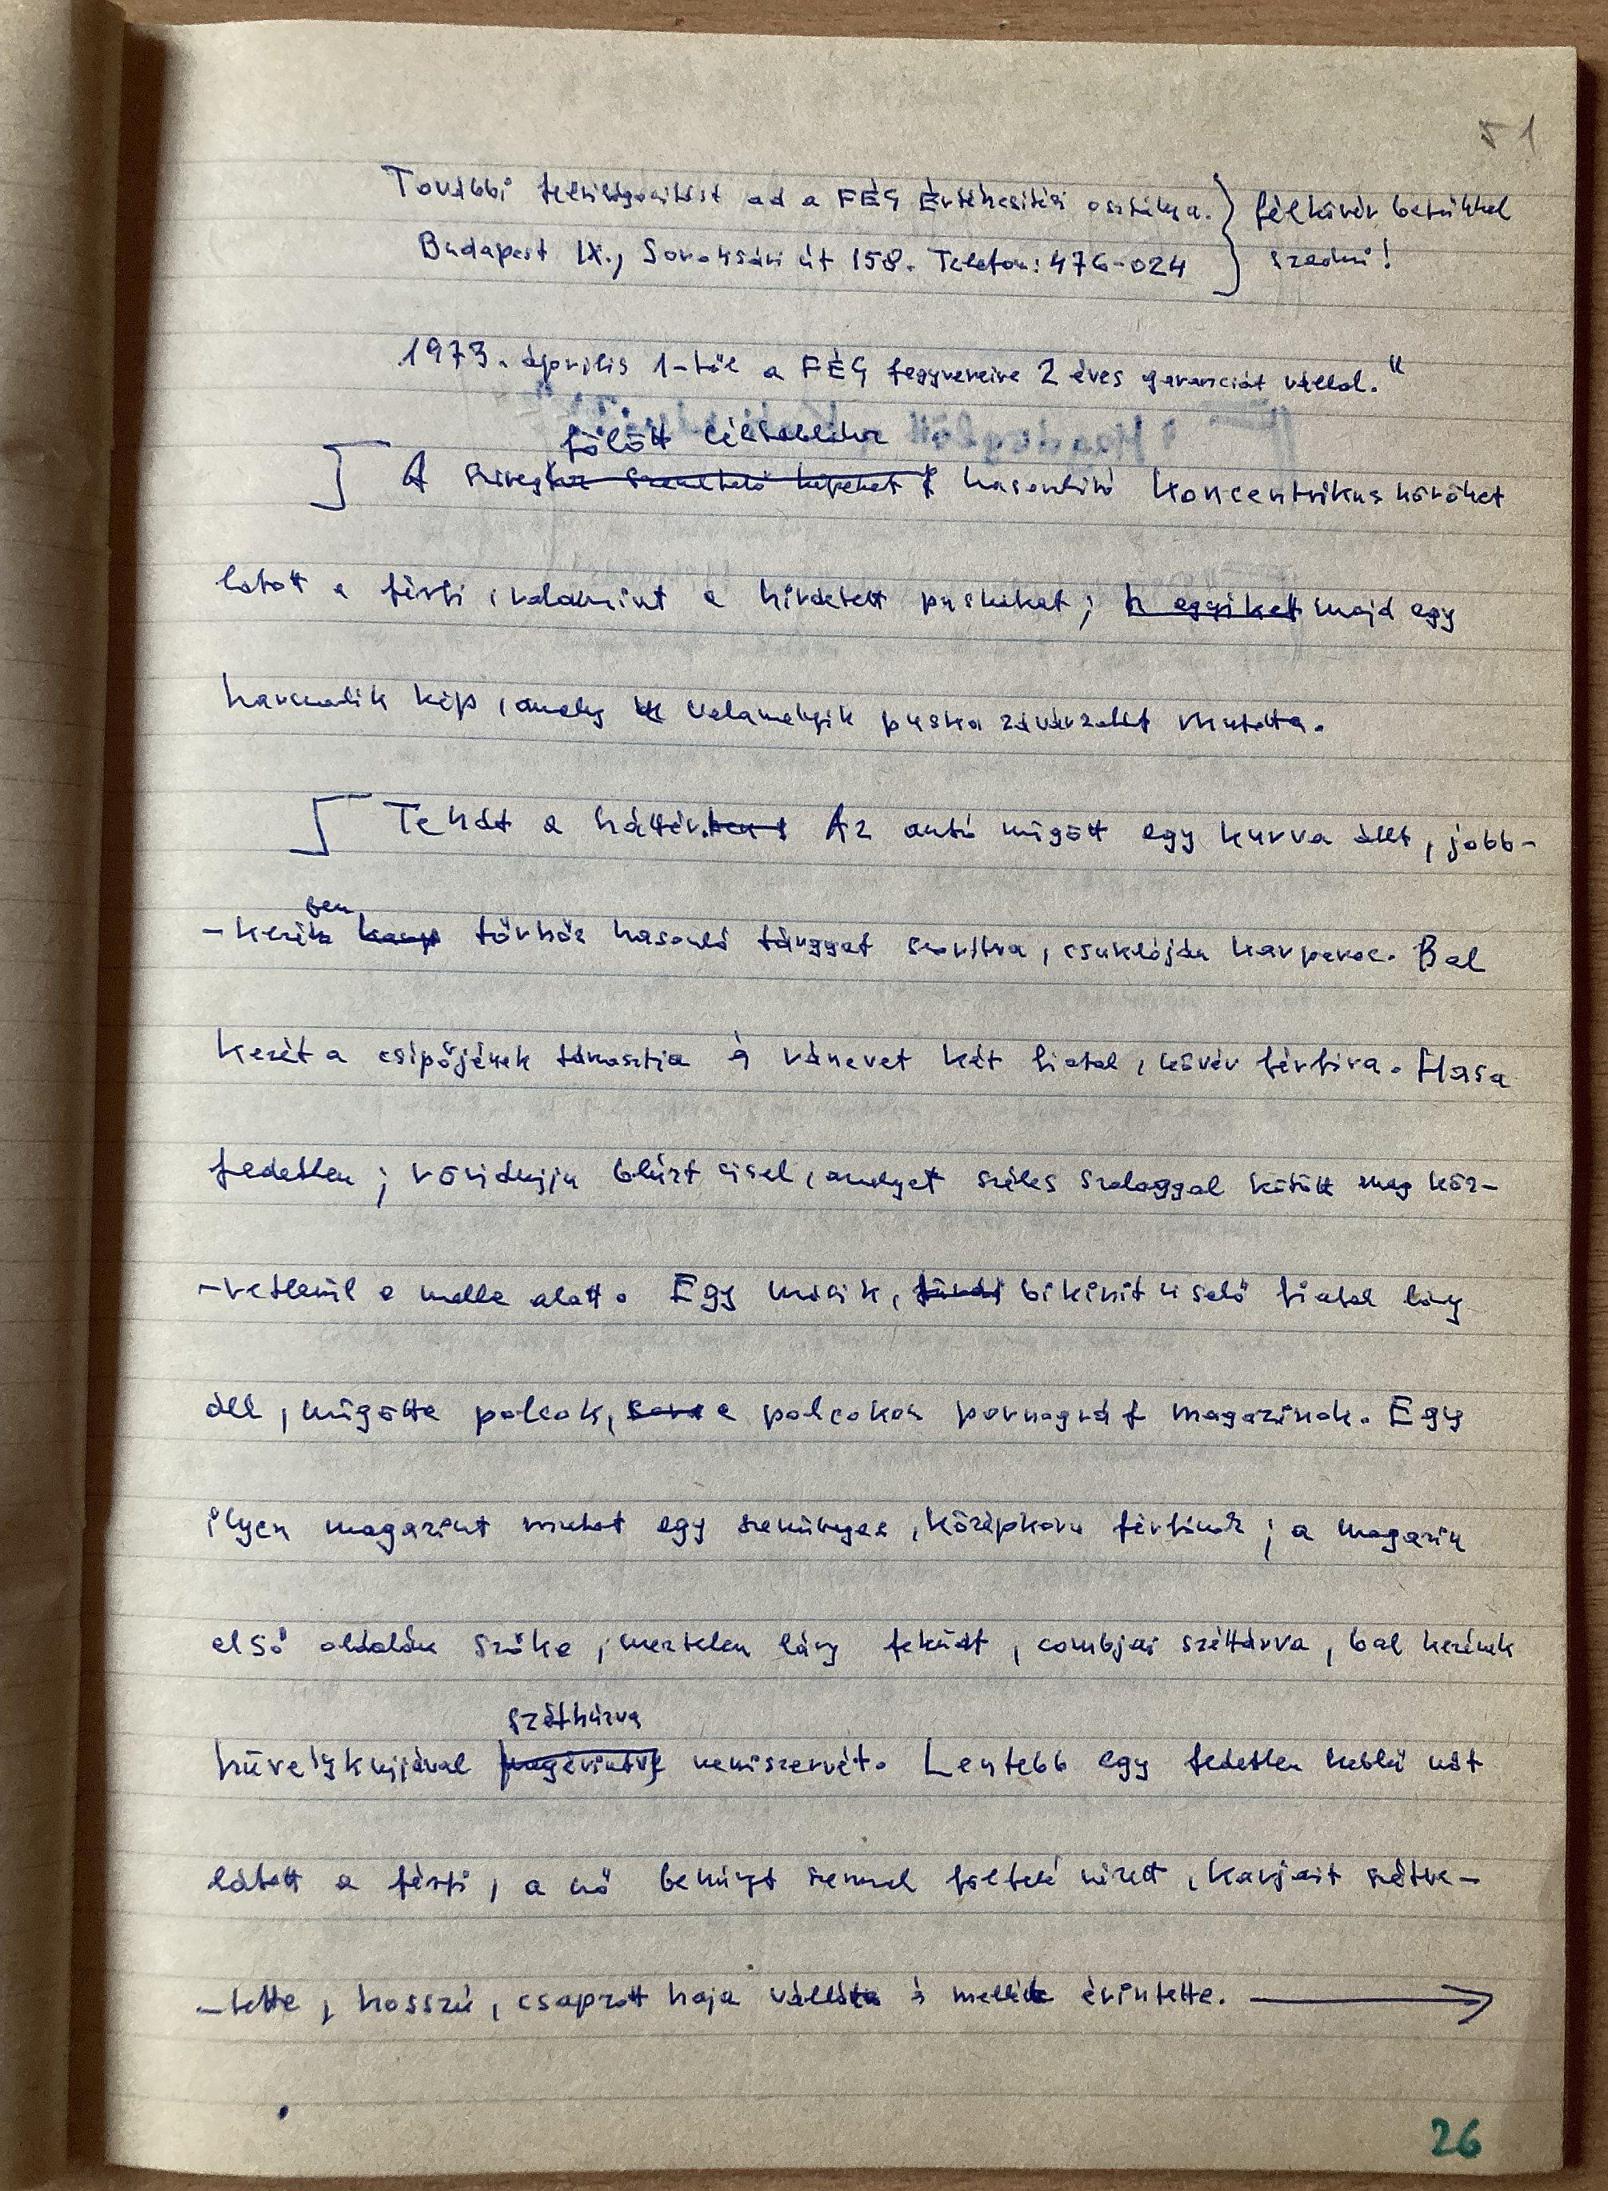 51
További felvilágosítást ad a FÉG Értékesítési osztálya. } félkövér betükkel
Budapest IX., Soroksári út 158. Telefon: 476-024 } szedni!
1973. április 1-től a FÉG fegyvereire 2 éves garanciát vállal."
fölött céltáblához
A szöveg hasonlító koncentrikus köröket
látott a férfi, valamint a hirdetett puskákat; majd egy
harmadik kép, amely valamelyik puska závárzatát mutatta.
Tehát a háttér. Az autó mögött egy kurva állt, jobb-
ben
-kezé tőrhöz hasonló tárgyat szorítva, csuklóján karperec. Bal
kezét a csípőjének támasztja és ránevet két fiatal, kövér férfira. Hasa
fedetlen; rövidujju blúzt visel, amelyet széles szalaggal kötött meg köz-
-vetlenül a melle alatt. Egy másik, bikinit viselő fiatal lány
áll, mögötte polcok, a polcokon pornográf magazinok. Egy
ilyen magazint mutat egy szemüveges, középkoru férfinak; a magazin
első oldalán szőke, meztelen lány feküdt, combjai széttárva, bal kezének
széthúzva
hüvelykujjával nemiszervét. Lentebb egy fedetlen keblü nőt
látott a férfi, a nő behúnyt szemmel fölfelé nézett, karjait szétve-
-tette, hosszú, csapzott haja vállát és mellét érintette. →
26